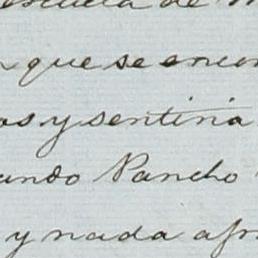 escuela de
que se encon
os y sentiria
ando Pancho
y nada afr